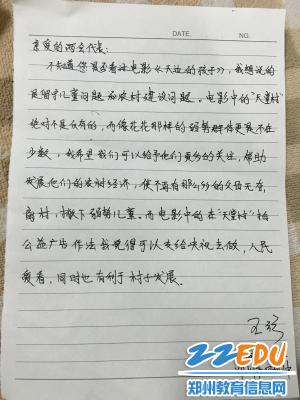 DATE. NO.
亲爱的两会代表:
不知道您是否看过电影《天边的孩子》,我想说的
是留守儿童问题和农村建设问题。电影中的"天堂村"
绝对不是仅有的,而像花花那样的弱势群体更是不在
少数,我希望我们可以给予他们更多的关注,帮助
发展他们的农村经济,使不再有那么多的父母无奈
离村,撇下弱势儿童。而电影中的在"天堂村"拍
公益广告作法我觉得可以交给央视去做,人民
爱看,同时也有利于村子发展。
22EDU
郑州教育信息网